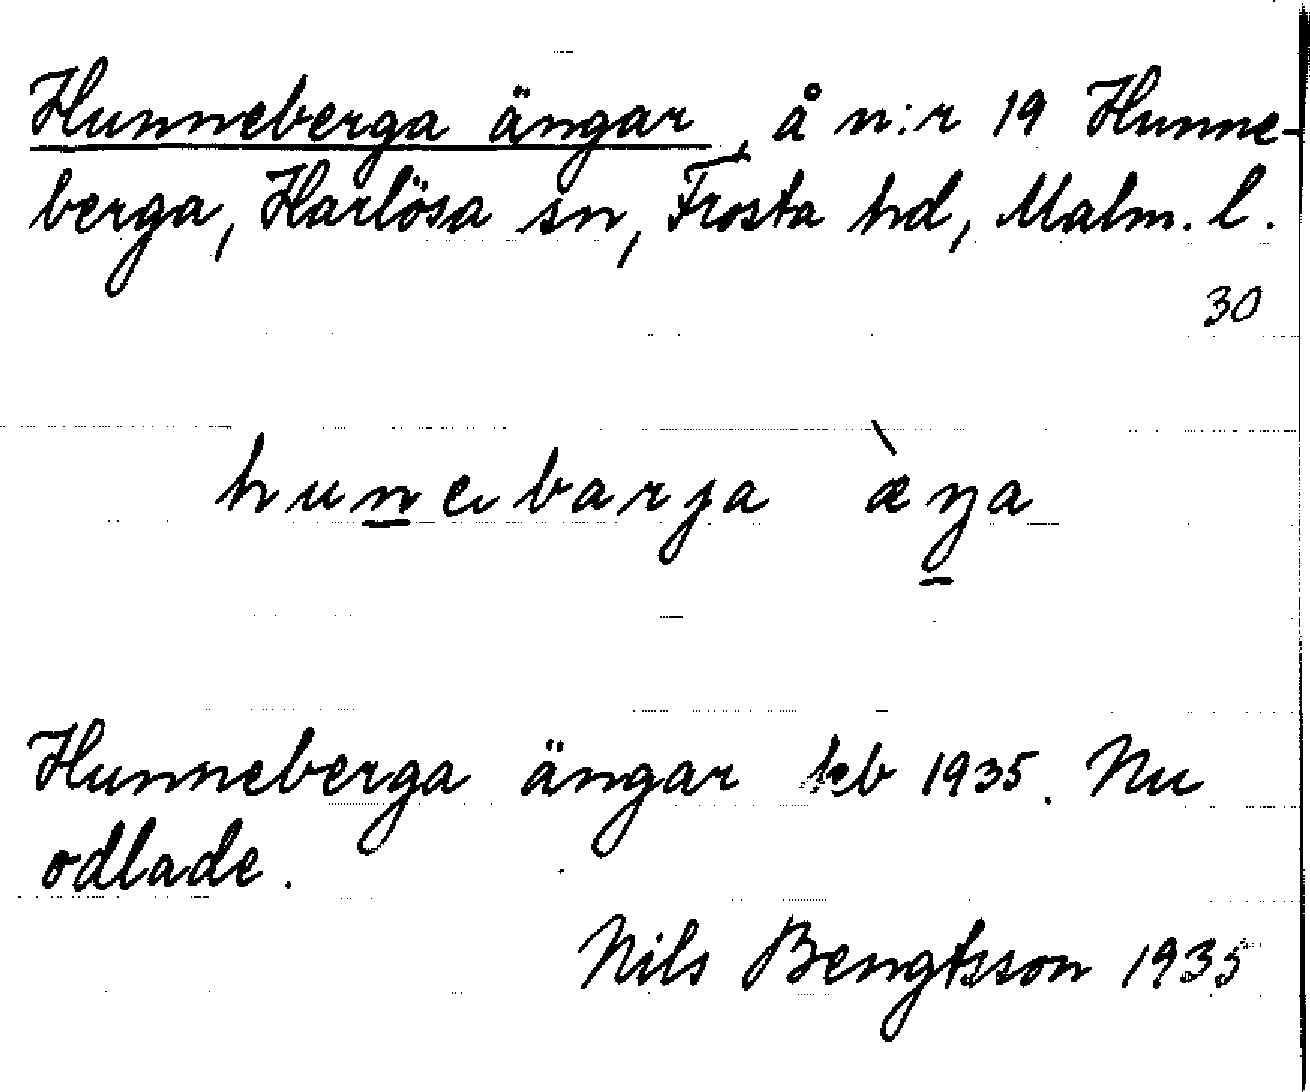 Hunneberga ängar, å n:r 19 Hunne-
berga, Harlösa sn, Frosta hd, Malm. l.
30
Hunneberga ängar kb 1935. Nu
odlade.
Nils Bengtsson 1935